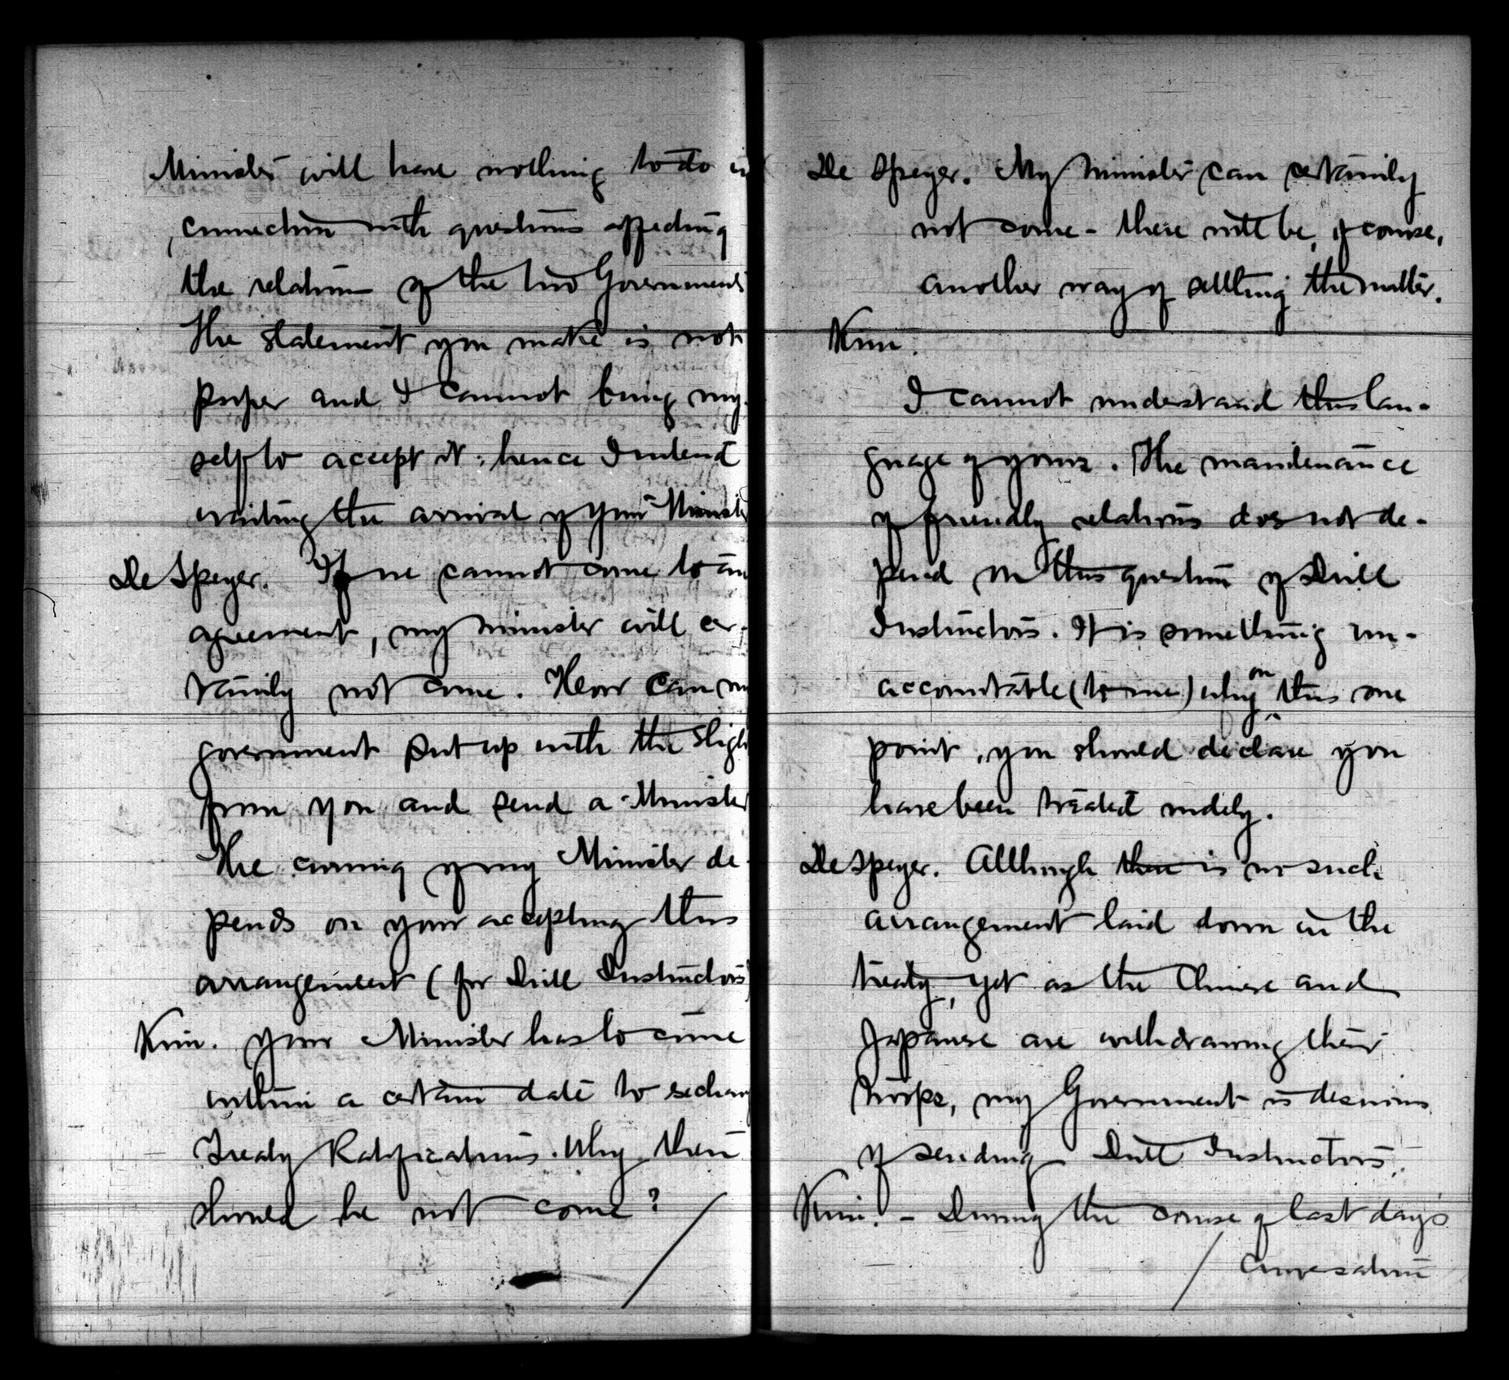 Minister will have nothing to do in
connection with questions affecting
the relation of the two Governments
The statement you make is not
proper and I cannot bring my-
self to accept it; hence I intend
waiting the arrival of your Minister
De Speyer. If we cannot come to an
agreement, my minister will cer-
tainly not come. How can my
government put up with the slight
from you and send a Minister
The coming of my Minister de-
pends on your accepting this
arrangement (for Drill Instructors)
Kim. Your Minister has to come
within a certain date to exchange
Treaty Ratifications. Why then
should he not come?
De Speyer. My Minister can certainly
not come - there will be, of course,
another way of settling the matter.
Kim.
I cannot understand this lan-
guage of yours. The maintenance
of friendly relations does not de-
pend on this question of Drill
Instructors. It is something un-
accountable (to me) why on this one
point, you should declare you
have been treated rudely.
De Speyer. Although there is no such
arrangement laid down in the
treaty, yet as the Chinese and
Japanese are withdrawing their
troops, my Government is desirous
of sending Drill Instructors.
Kim. - During the course of last days
conversation